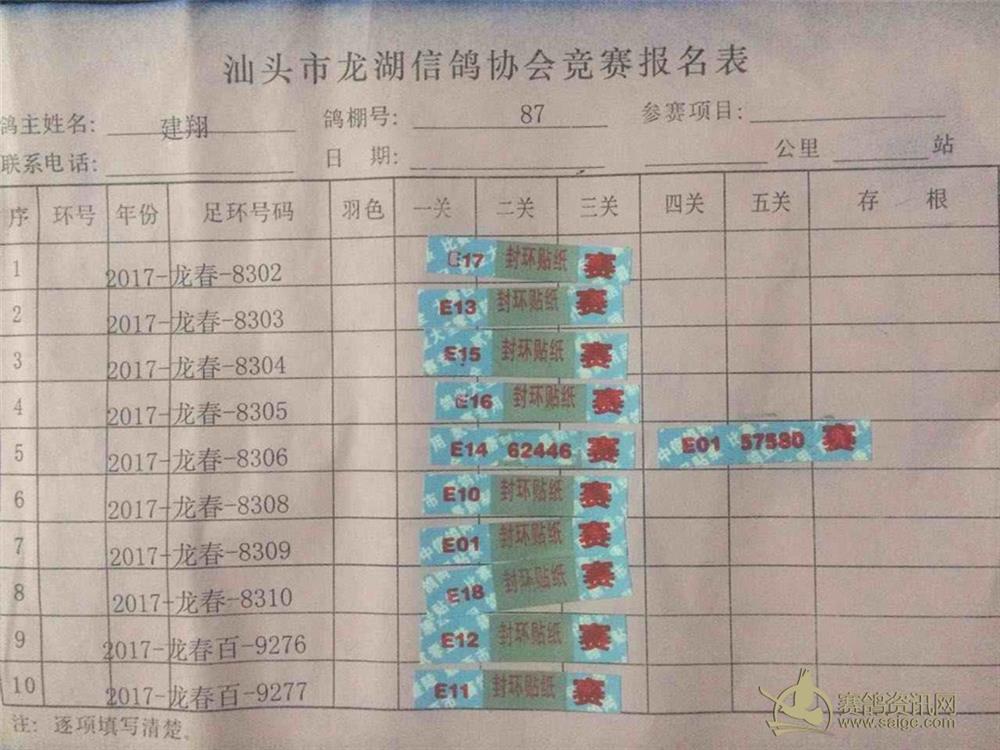 汕头市龙湖信鸽协会竞赛报名表
鸽主姓名: 建翔 鸽棚号: 87 参赛项目:
联系电话: 日 期: 公里 站
序 环号 年份 足环号码 羽色 一关 二关 三关 四关 五关 存 根
1 2017-龙春-8302 E17 封环贴纸 赛
2 2017-龙春-8303 E13 封环贴纸 赛
3 2017-龙春-8304 E15 封环贴纸 赛
4 2017-龙春-8305 E16 封环贴纸 赛
5 2017-龙春-8306 E14 62446 赛 E01 57580 赛
6 2017-龙春-8308 E10 封环贴纸 赛
7 2017-龙春-8309 E01 封环贴纸 赛
8 2017-龙春-8310 E18 封环贴纸 赛
9 2017-龙春百-9276 E12 封环贴纸 赛
10 2017-龙春百-9277 E11 封环贴纸 赛
注: 逐项填写清楚。
赛鸽资讯网
www.saigc.com